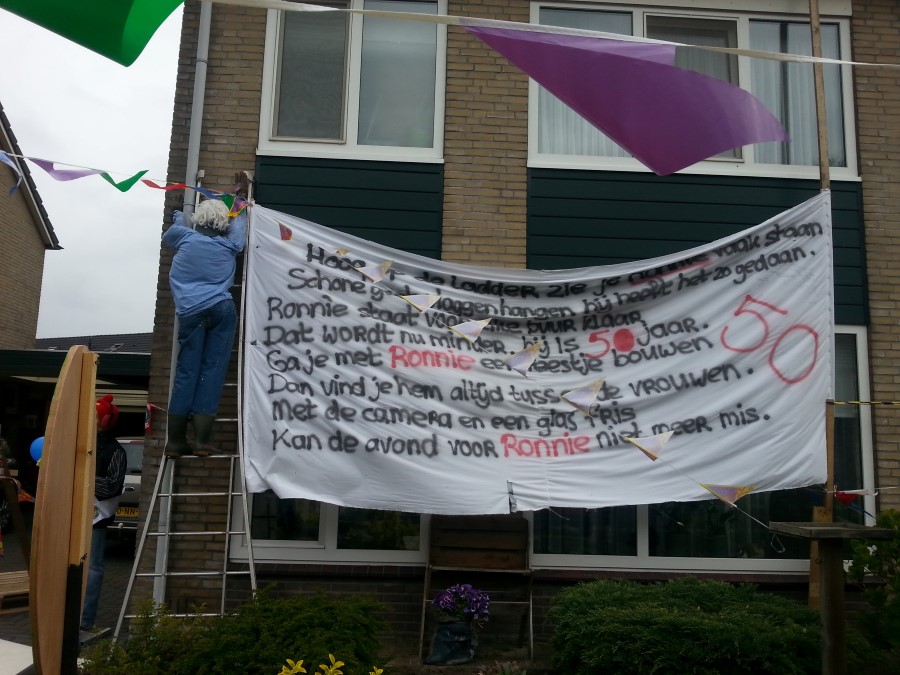 Hoog de ladder zie je Ronnie vaak staan
Schone vlaggen hangen hij heeft het zo gedaan.
Ronnie staat voor buur klaar
Dat wordt nu minder hij is 50 jaar.
50
Ga je met Ronnie een feestje bouwen
Dan vind je hem altijd de vrouwen.
Met de camera en een glas fris
Kan de avond voor Ronnie niet meer mis.